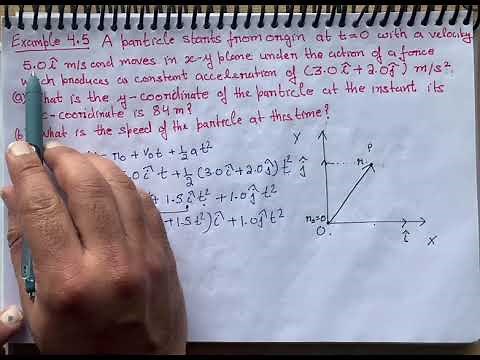 Example 4.5 A particle starts from origin at t=0 with a velocity
5.0 î m/s and moves in x-y plane under the action of a force
which produces a constant acceleration of (3.0î+2.0ĵ) m/s².
(a) What is the y-coordinate of the particle at the instant its
x-coordinate is 84 m?
(b) What is the speed of the particle at this time?
r₀ + v₀t + ½at²
.0 î t + ½ (3.0î+2.0ĵ) t²
1.5 î t² + 1.0 ĵ t²
+ 1.5t²) î + 1.0 ĵ t²
Y
P
ĵ
r
r₀=0
O
î
X